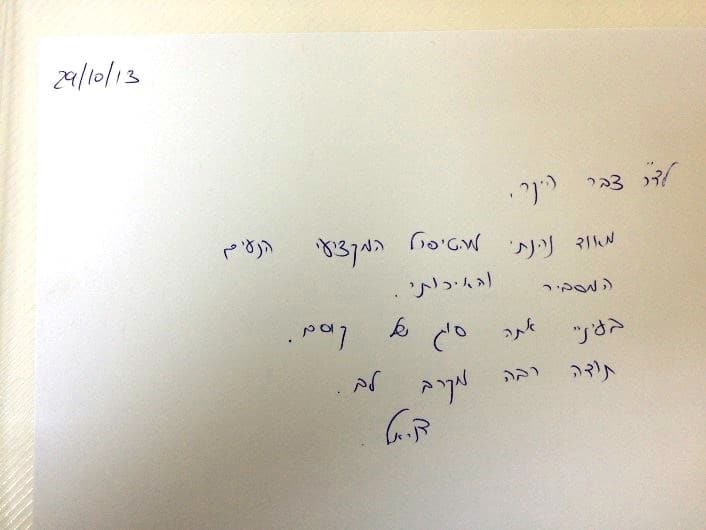 29/10/13
לד״ר צבר היקר.
מאוד נהנתי מהטיפול המקצועי הנעים
המסביר והאיכותי.
בעיניי אתה סוג של קוסם.
תודה רבה מקרב לב.